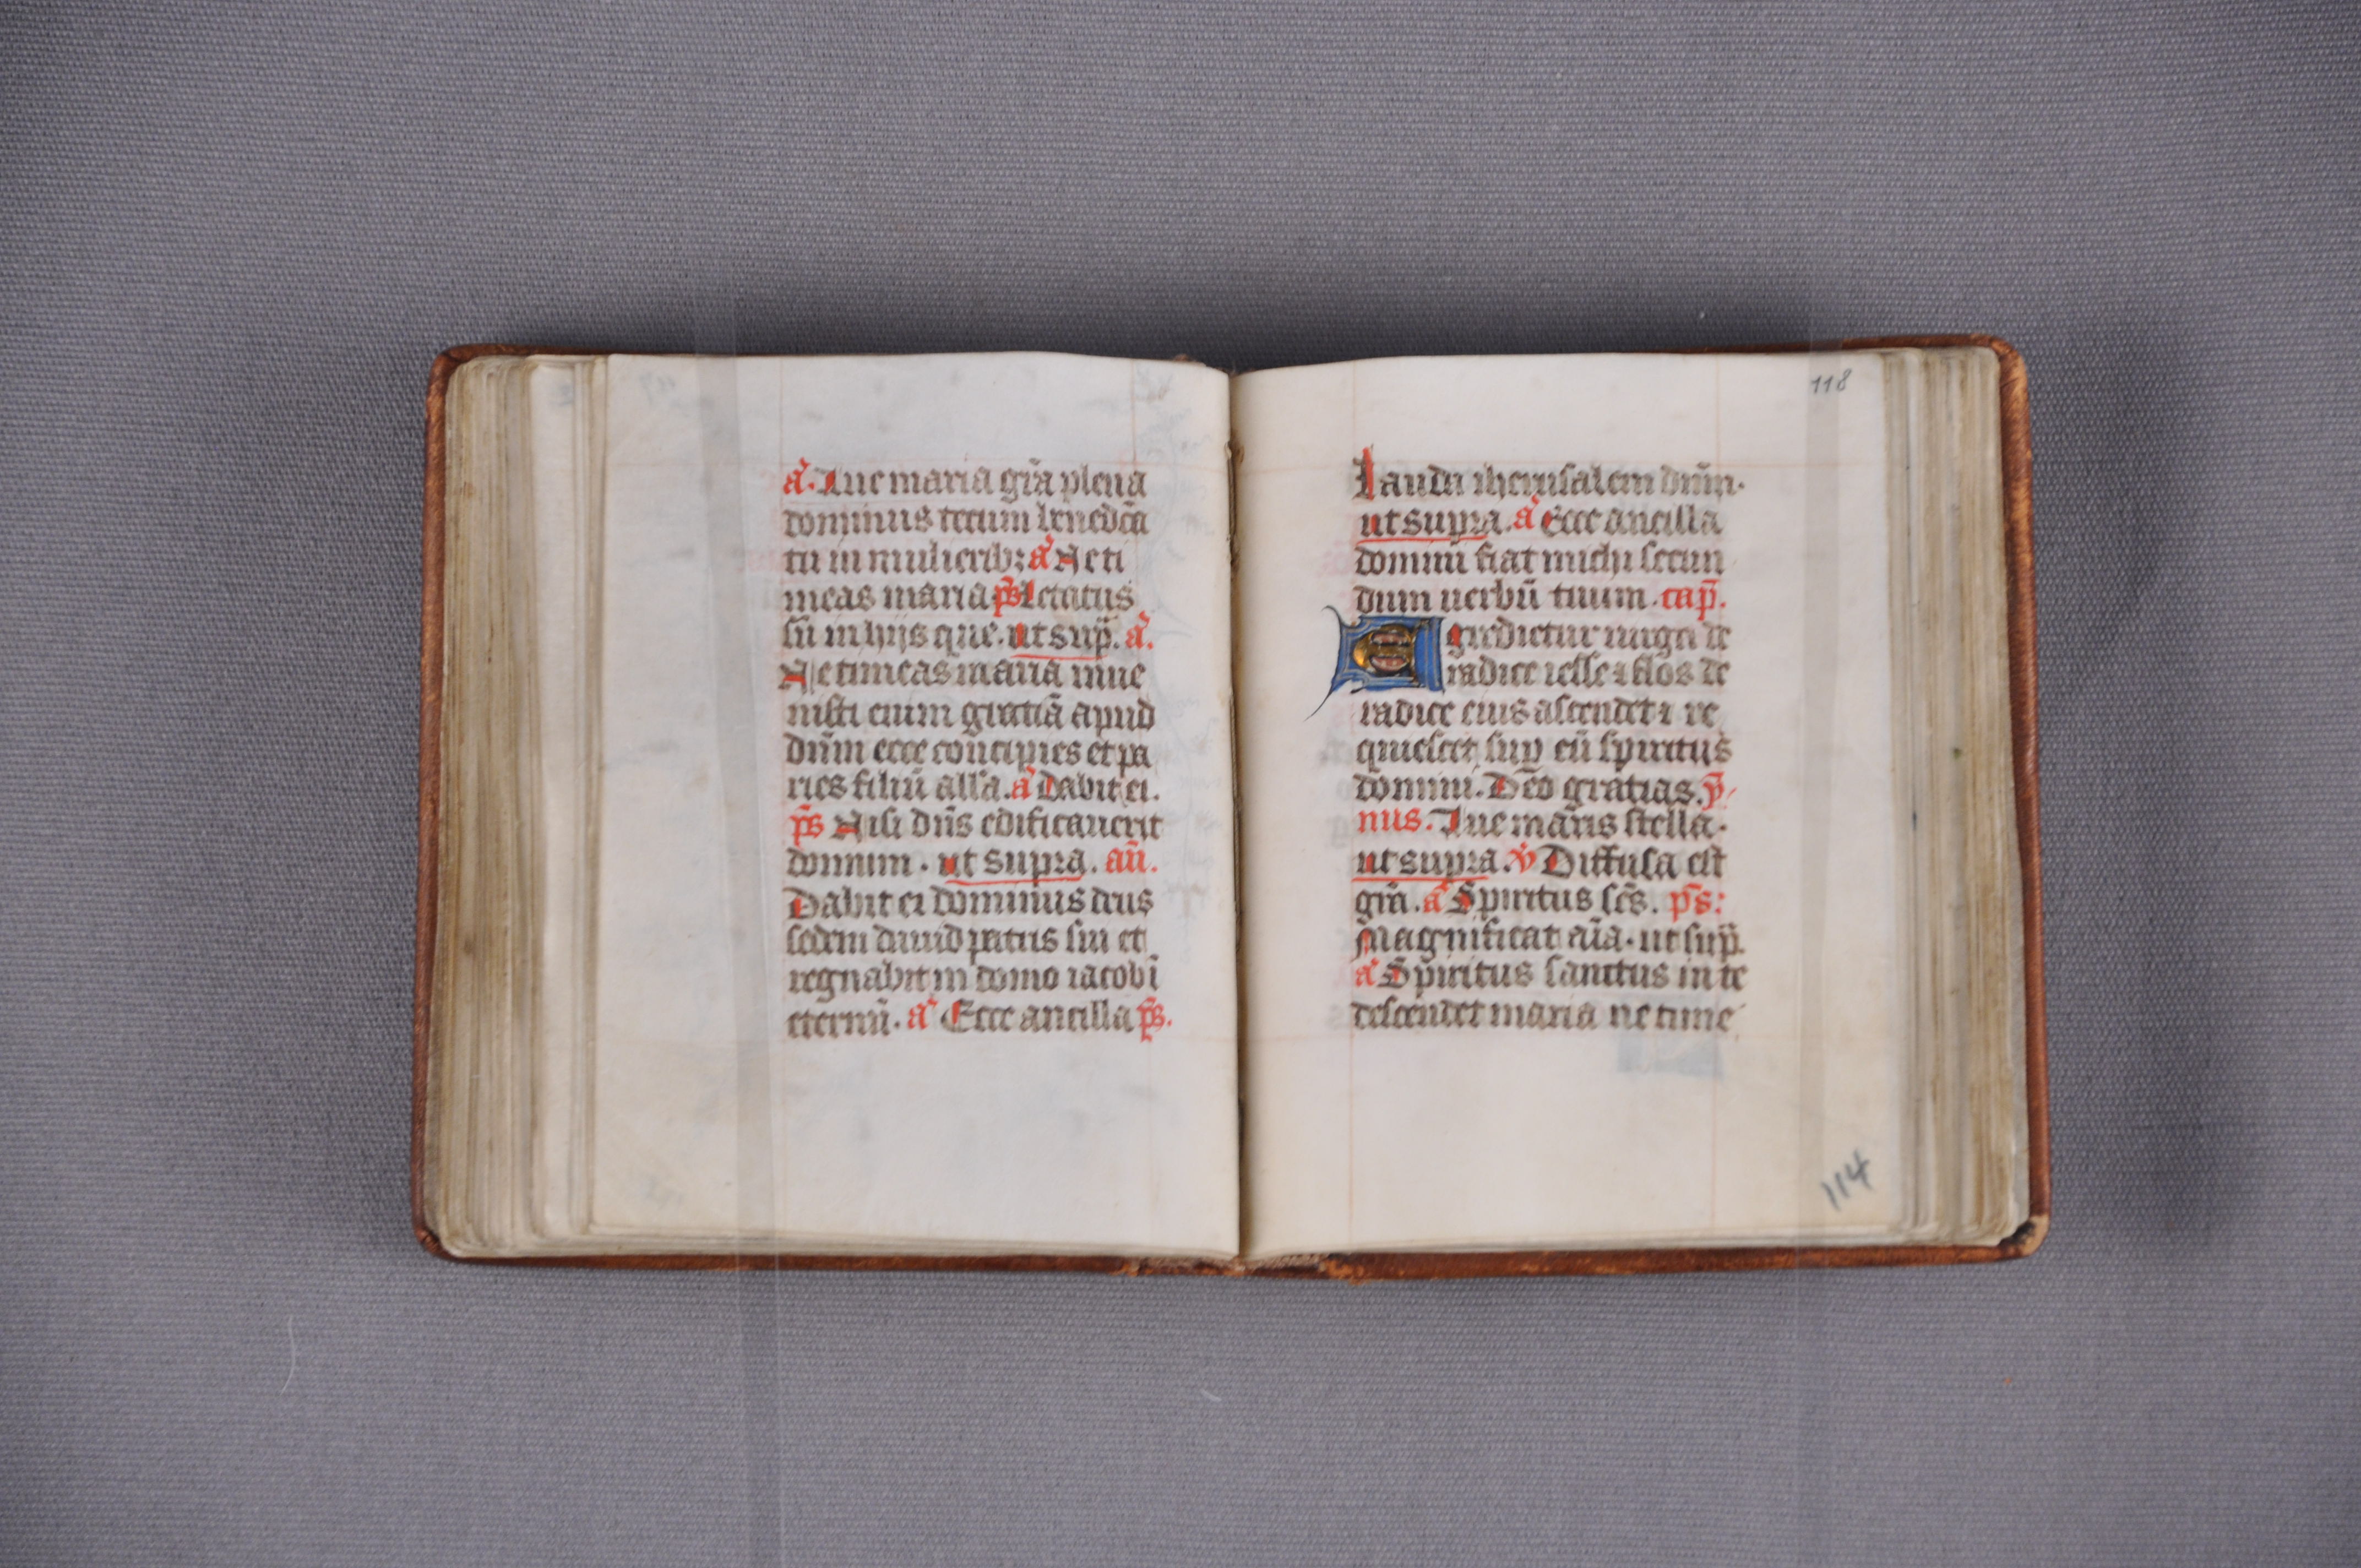 a᷑. Aue maria gr̃a plena
dominus tecum benedc̃a
tu in mulierib; a᷑ Ne ti
meas maria ps̃ Letatus
sũ in hijs que. ut sup̃. a᷑.
Ne timeas maria inue
nisti enim gratiã apud
dñm ecce concipies et pa
ries filiũ alła. a᷑ Dabit ei.
ps̃ Nisi dñs edificauerit
domum. ut supra. añ.
Dabit ei dominus deus
sedem dauid patris sui et
regnabit in domo iacob ĩ
eternũ. a᷑ Ecce ancilla ps̃.
118
Lauda iherusalem dñm.
ut supra. a᷑ Ecce ancilla
domini fiat michi secun
dum uerbũ tuum. cap̃.
Egredietur uirga de
radice iesse ⁊ flos de
radice eius ascendet ⁊ re
quiescet sup eũ spiritus
domini. Deo gratias. ẏ
nus. Aue maris stella.
ut supra. ꝟ Diffusa est
gr̃a. a᷑ Spiritus scs̃. ps̃:
Magnificat aĩa. ut sup̃.
a᷑ Spiritus sanctus in te
descendet maria ne time
114